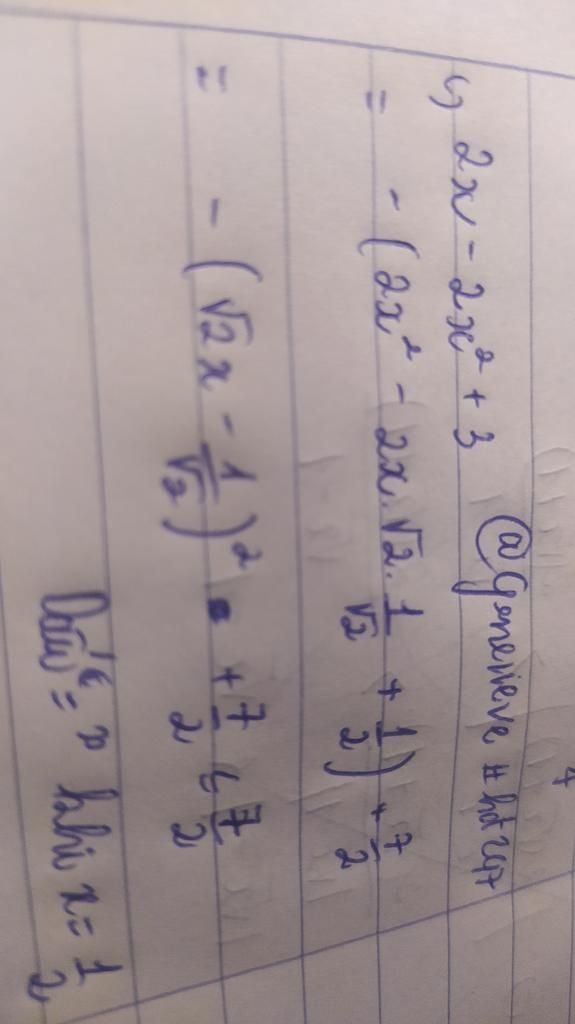 ↳ 2x - 2x² + 3 @Genevieve #hoc247
= - (2x² - 2x.√2.1/√2 + 1/2) + 7/2
= - (√2x - 1/√2)² + 7/2 ≤ 7/2
Dấu "=" khi x = 1/2